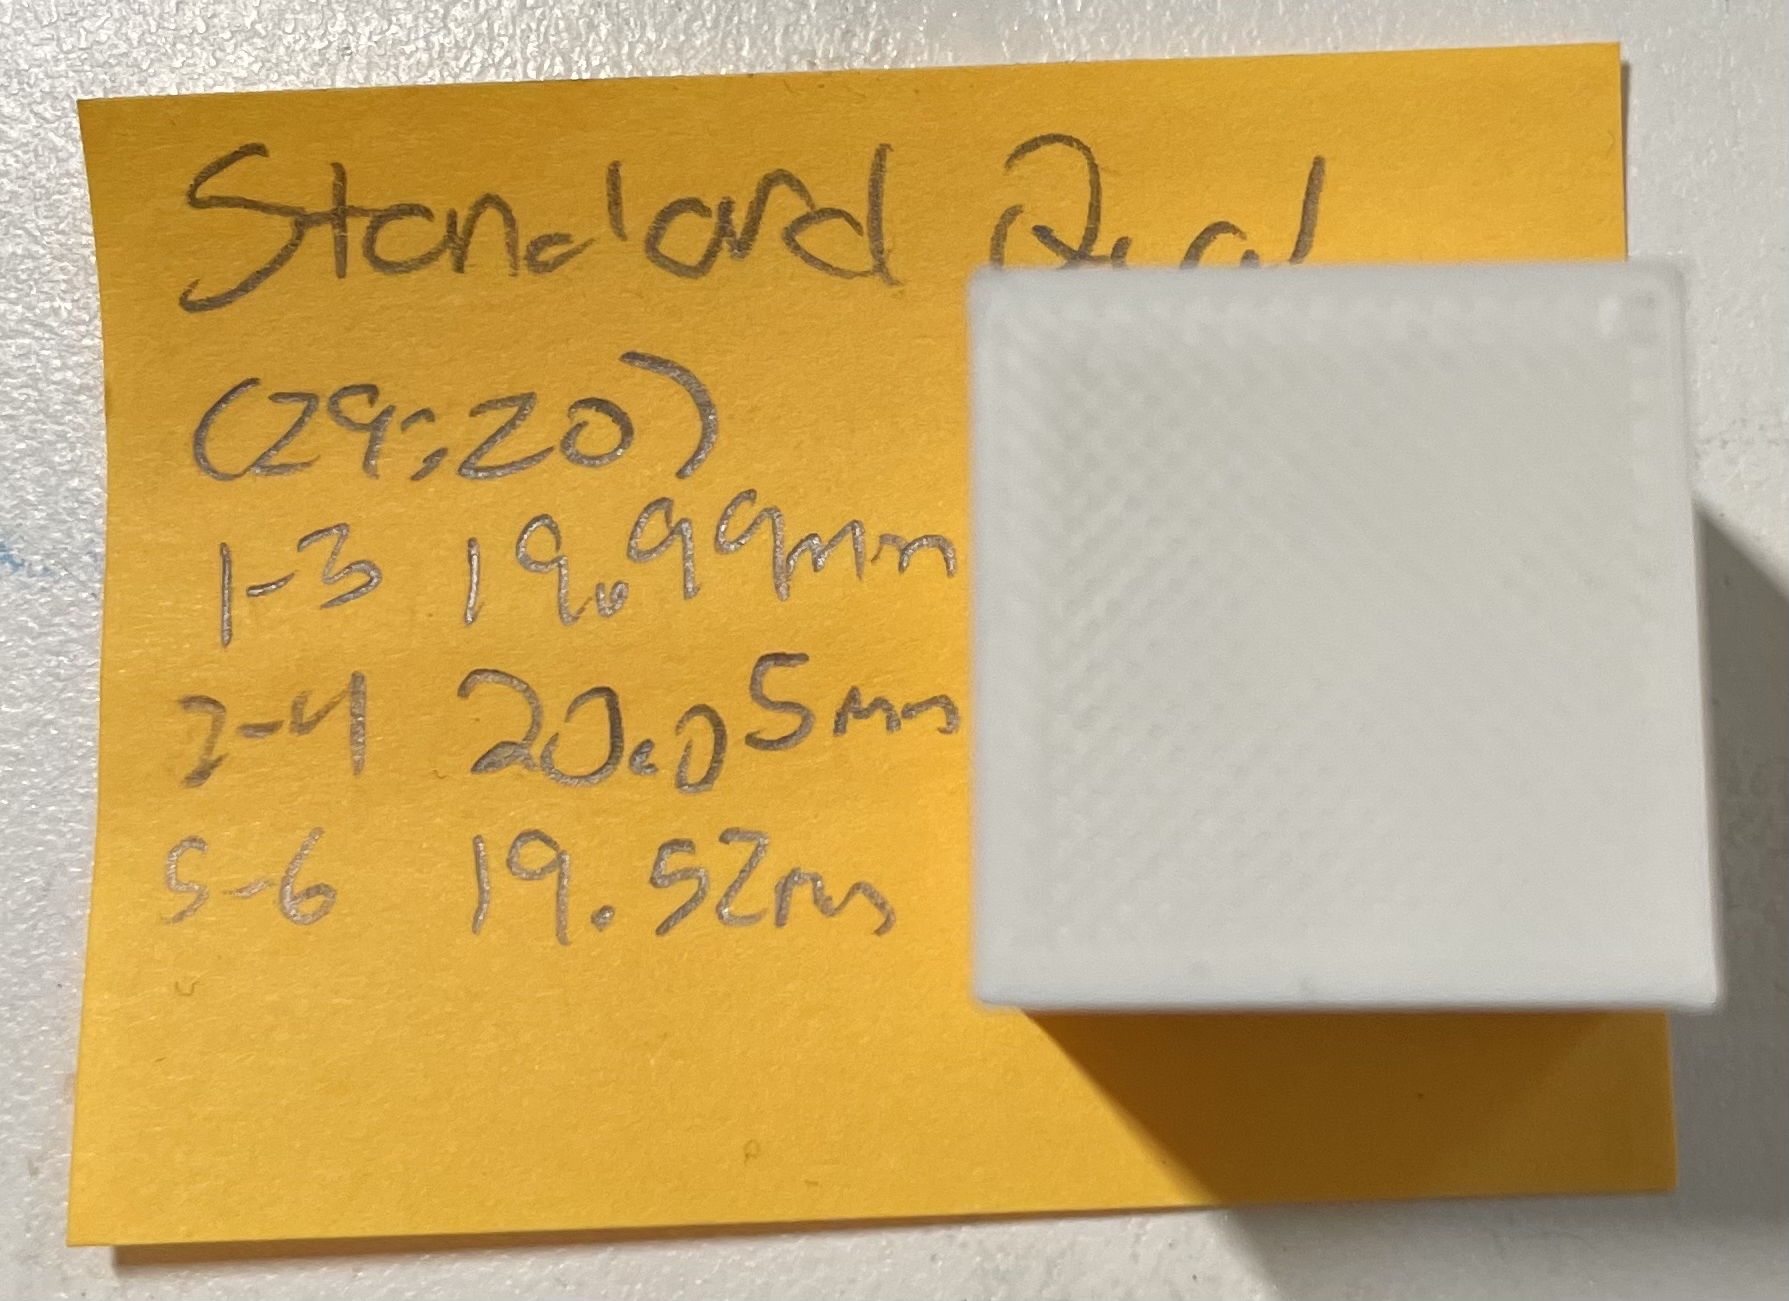 Standard
(29:20)
1-3 19.99mm
2-4 20.05mm
5-6 19.52mm